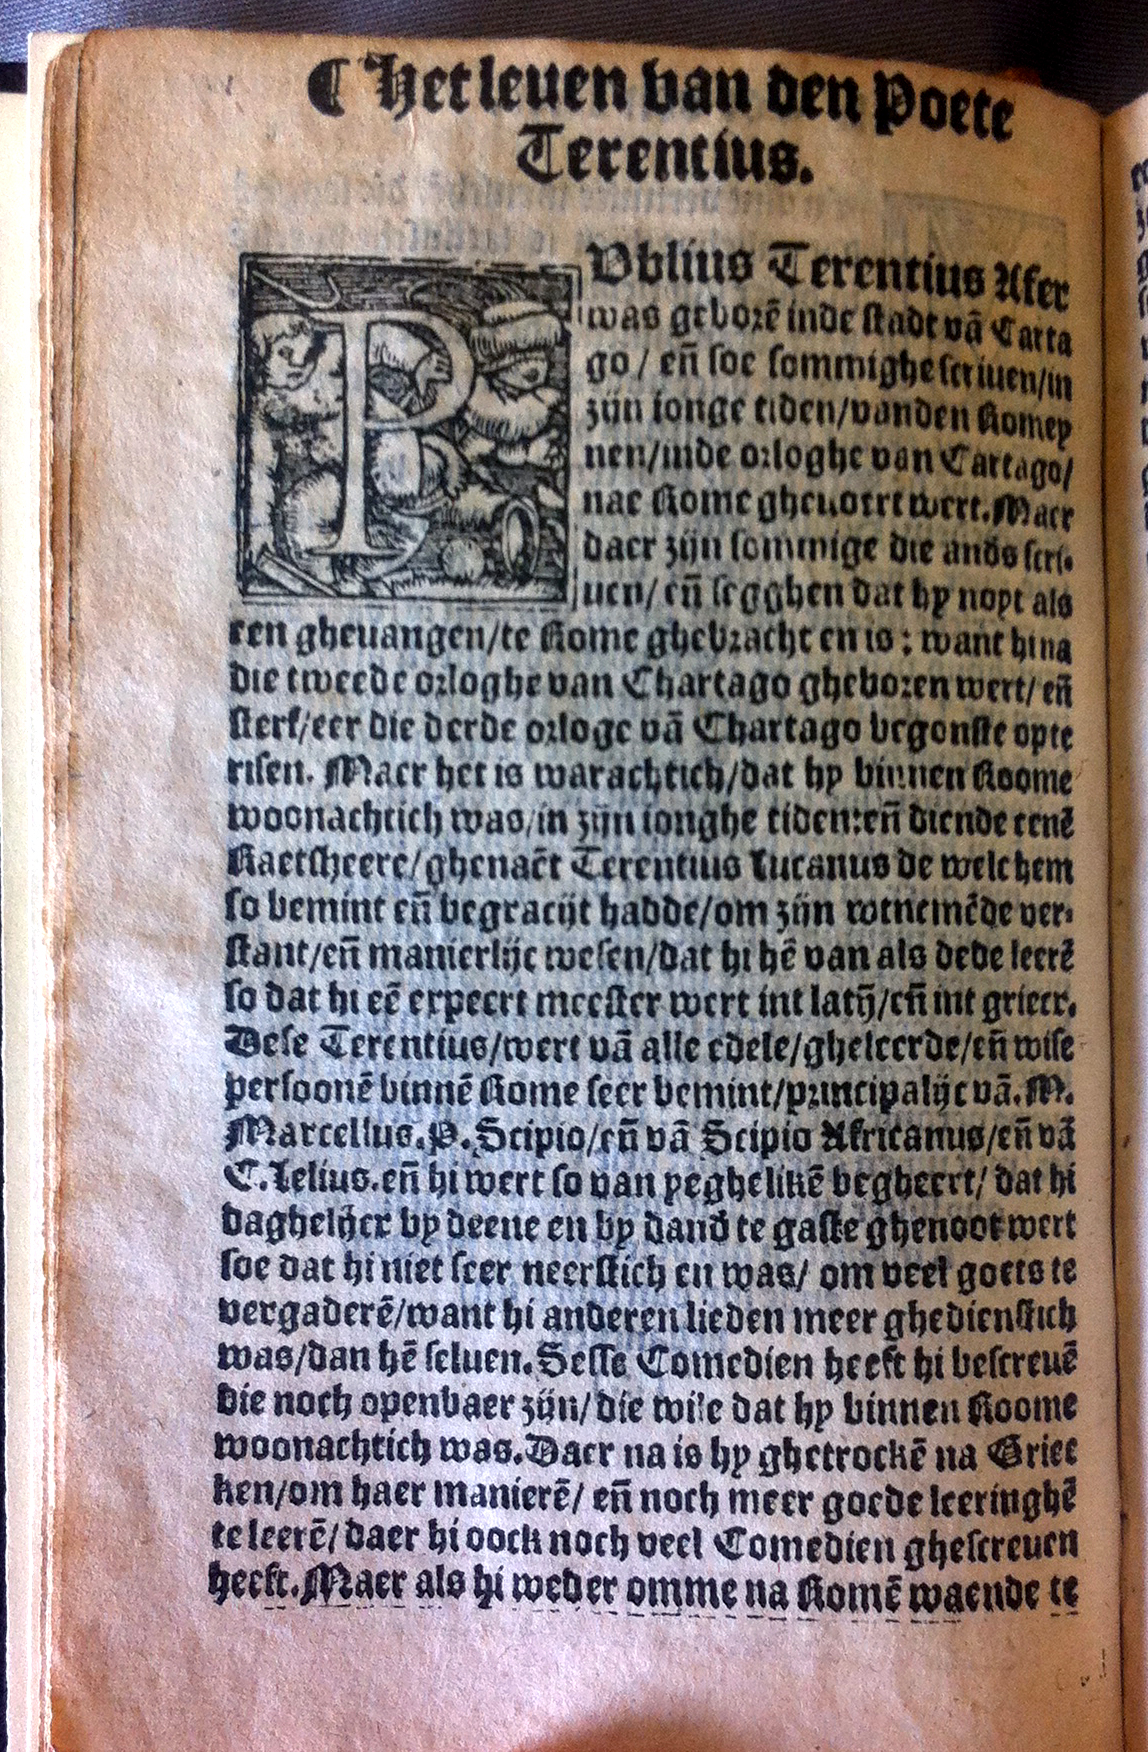 ¶ Het leuen van den Poete
Terentius.
PVblius Terentius Afer
was geborē inde stadt vā Carta
go / eñ soe sommighe scriuen/in
zijn ionge tiden/vanden Romey
nen/inde orloghe van Cartago/
nae Rome gheuoert wert. Maer
daer zijn sommige die anđs scri-
uen/ eñ segghen dat hy noyt als
een gheuangen/te Rome ghebracht en is : want hi na
die tweede orloghe van Chartago gheboren wert/ eñ
sterf/eer die derde orloge vā Chartago begonste opte
risen. Maer het is warachtich/dat hy binnen Roome
woonachtich was/in zijn ionghe tiden:eñ diende eenē
Raetsheere/ghenaēt Terentius Lucanus de welc hem
so bemint eñ begracijt hadde/om zijn wtnemēde ver-
stant/eñ manierlijc wesen/dat hi hē van als dede leerē
so dat hi eē expeert meester wert int latyn̄/eñ int griecx.
Dese Terentius/wert vā alle edele/gheleerde/eñ wise
persoonē binnē Rome seer bemint/principalijc vā. M.
Marcellus. P. Scipio/eñ vā Scipio Africanus/eñ vā
C. Lelius. eñ hi wert so van yeghelikē begheert/ dat hi
daghelijcx by deene en by dand̄ te gaste ghenoot wert
soe dat hi niet seer neerstich en was/ om veel goets te
vergaderē/want hi anderen lieden meer ghedienstich
was/dan hē seluen. Sesse Comedien heeft hi bescreuē
die noch openbaer zijn/ die wile dat hy binnen Roome
woonachtich was. Daer na is hy ghetrockē na Griec
ken/om haer manierē/ eñ noch meer goede leeringhē
te leerē/ daer hi oock noch veel Comedien ghescreuen
heeft. Maer als hi weder omme na Romē waende te